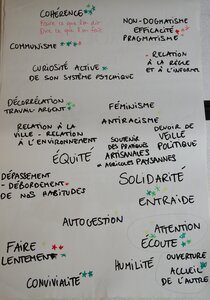 COHÉRENCE
Faire ce que l'on dit
Dire ce que l'on fait
NON-DOGMATISME
EFFICACITÉ
PRAGMATISME
COMMUNISME
- RELATION
À LA RÈGLE
ET À L'INFORM
CURIOSITÉ ACTIVE
DE SON SYSTÈME PSYCHIQUE
DÉCORRÉLATION
TRAVAIL-ARGENT
FÉMINISME
ANTIRACISME
RELATION À LA
VILLE - RELATION
À L'ENVIRONNEMENT
SOUTENIR
DES PRATIQUES
ARTISANALES
AGRICOLES PAYSANNES
DEVOIR DE
VEILLE
POLITIQUE
ÉQUITÉ
DÉPASSEMENT
- DÉBORDEMENT
DE NOS HABITUDES
SOLIDARITÉ
ENTRAIDE
AUTOGESTION
ATTENTION
ÉCOUTE
FAIRE
LENTEMENT
HUMILITÉ
OUVERTURE
ACCUEIL
DE L'AUTRE
CONVIVIALITÉ